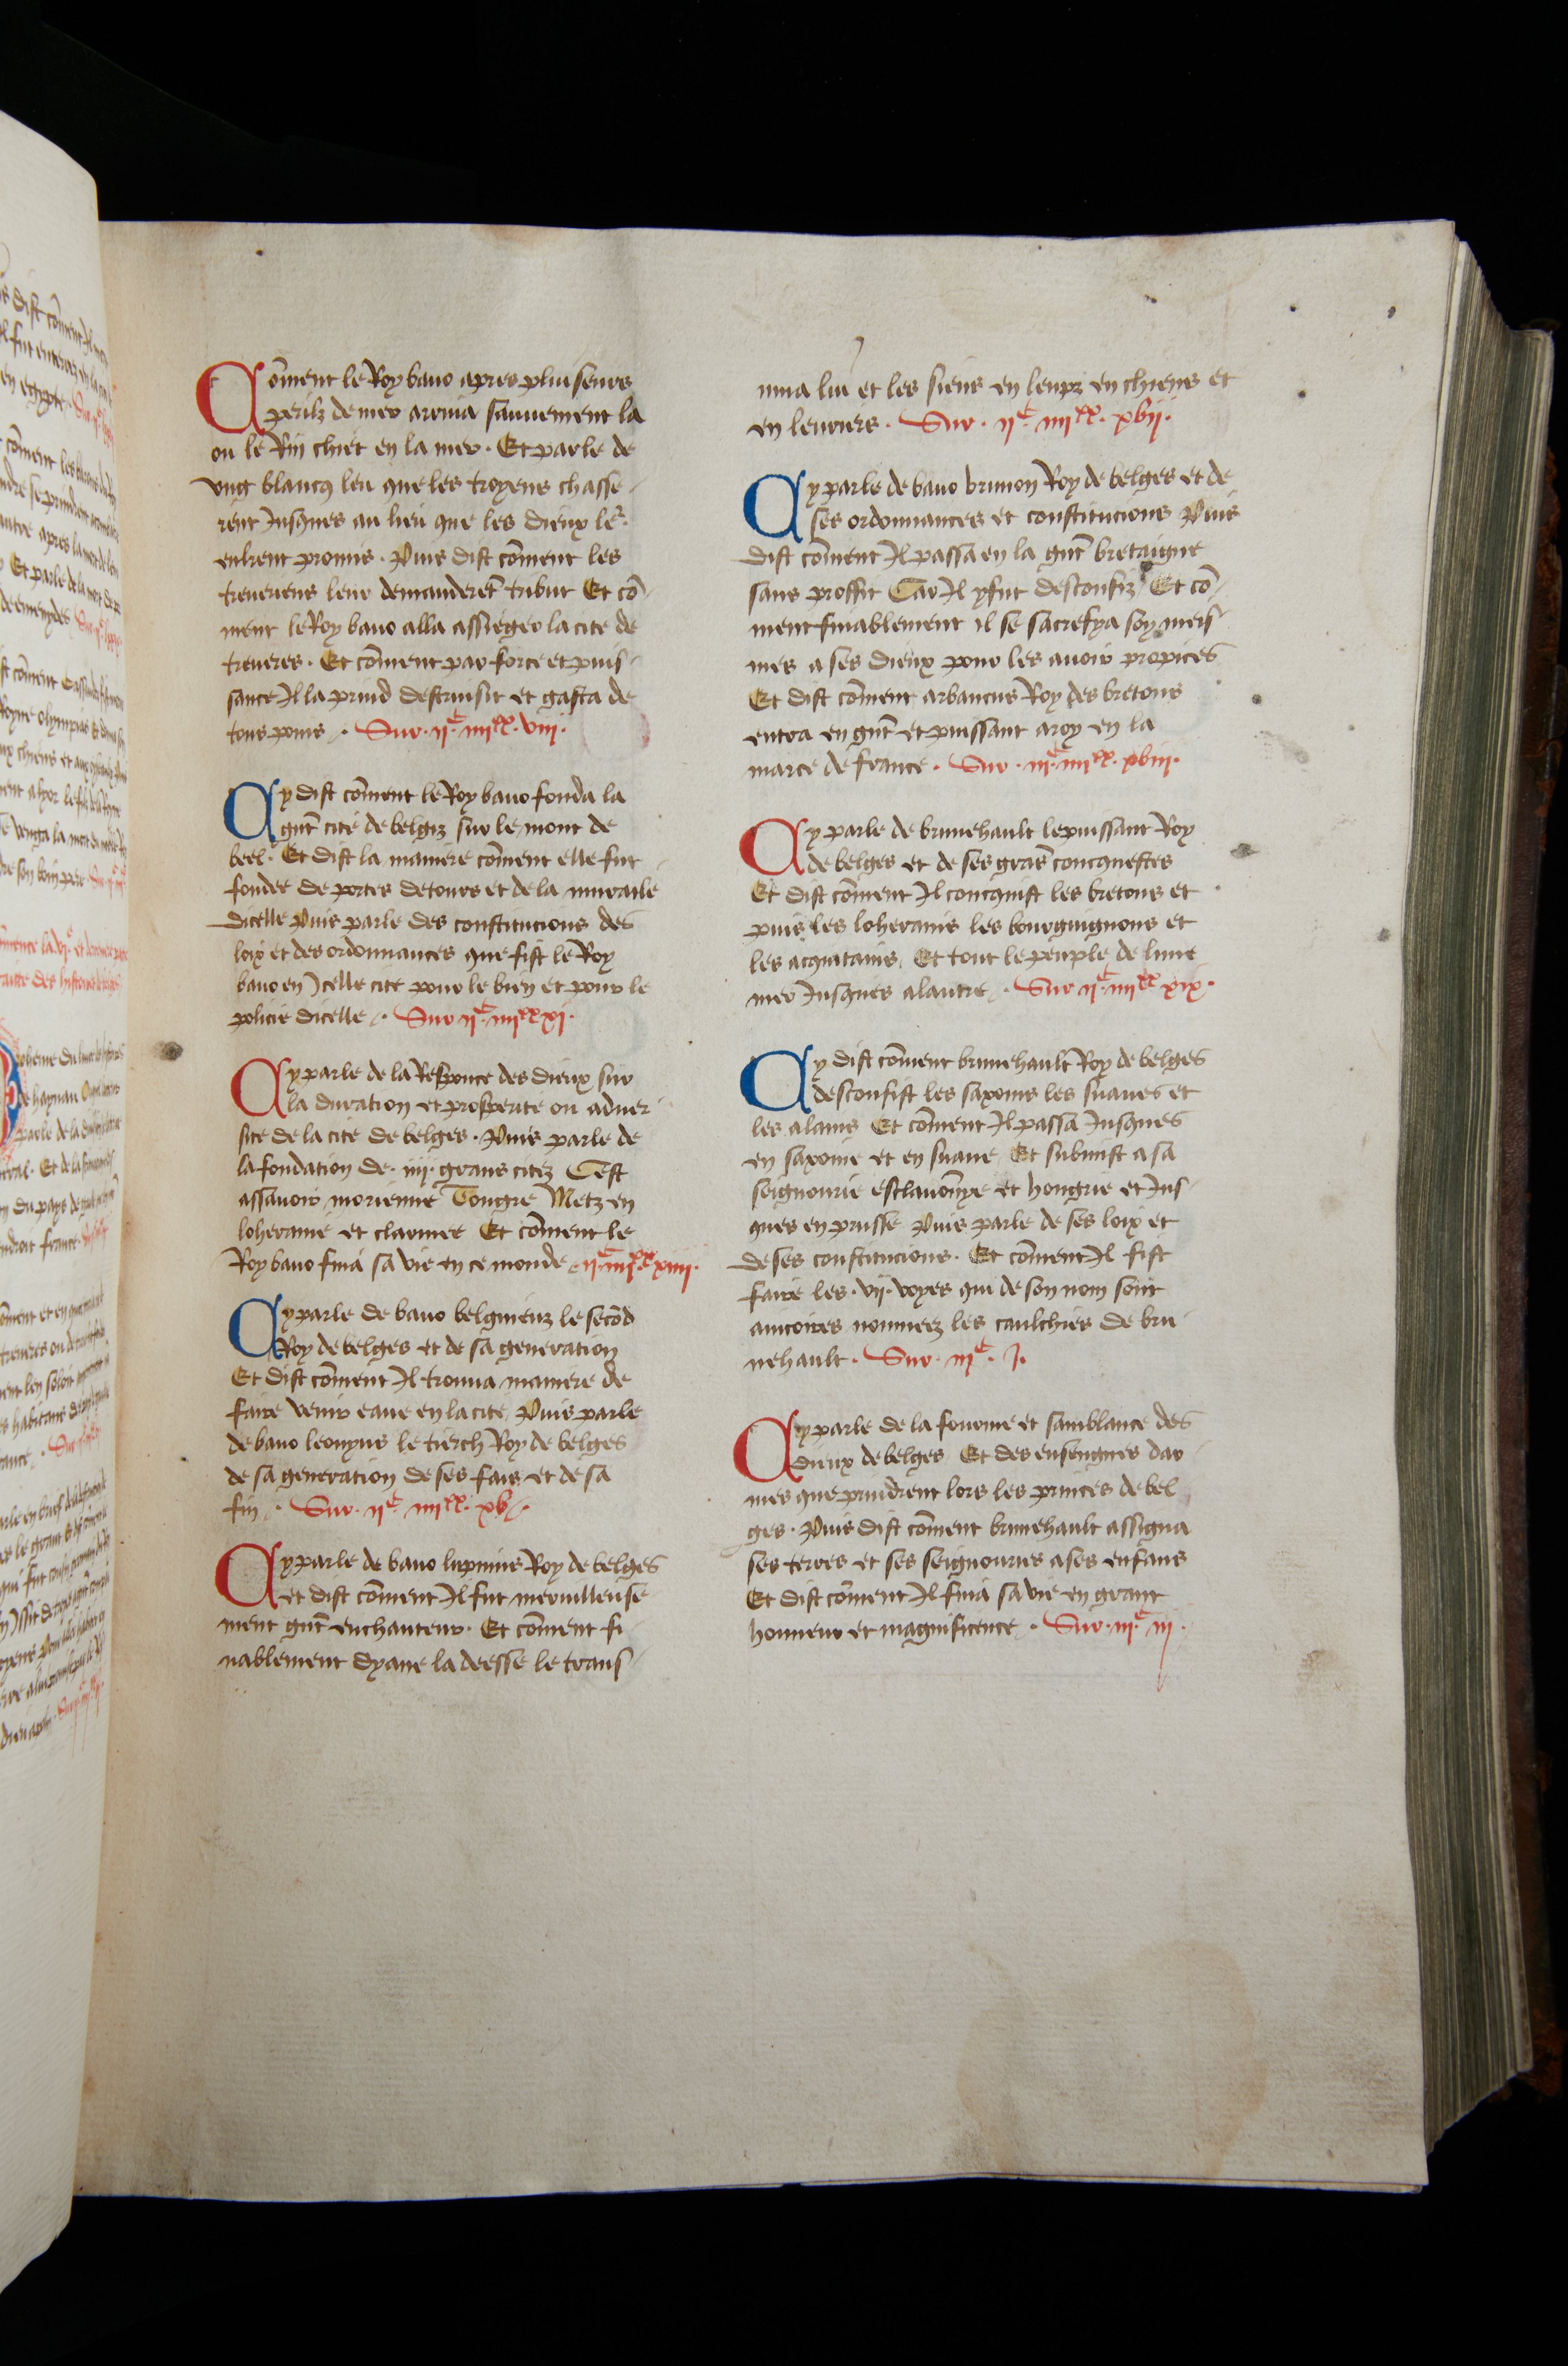 Cōment le Roy bauo apres pluiseurs
perilz de mer arriua sauuement la
ou le Rin chiet en la mer. Et parle de
vng blancq leu que les troyens chasse
rent Jusques au lieu que les dieux le2
eulrent promis. Puis dist cōment les
treueriens leur demanderēt tribut Et cō
ment le Roy bauo alla assieger la cite de
treueres. Et cōment par force et puis
sance Jl la prind destruisit et gasta de
tous poins. Sur. ijc. iiijxx. viij.
Cy dist cōment le Roy bauo fonda la
gnt cite de belgiz sur le mont de
beel. Et dist la maniere cōment elle fut
fondee de portes de tours et de la muraile
dicelle Puis parle des constitucions des
loix et des ordonnances que fist le Roy
bauo en Jcelle cite pour le bien et pour le
policie dicelle. Sur ijc. iiijxx xj.
Cy parle de la Responce des dieux sur
la duration et prosperite ou aduer
site de la cite de belges. Puis parle de
la fondation de. iiij. grans citez Cest
assauoir morienne Tongre Metz en
loheraine et claruee Et cōment le
Roy bauo fina sa vie en ce monde. ijc. iiijxx xiiij.
Cy parle de bauo belgineuz le secōd
Roy de belges et de sa generation
Et dist cōment Jl trouua maniere de
faire venir eaue en la cite, Puis parle
de bauo leonyus le tierch Roy de belges
de sa generation de ses fais et de sa
fin. Sur. ijc. iiijxx. xv.
Cy parle de bauo lupinus Roy de belges
et dist cōment Jl fut merueilleuse
ment gnt enchanteur. Et cōment fi
nablement dyane la deesse le trans
mua lui et les siens en leupz en chiens et
en leuriers. Sur. ijc. iiijxx. xvij.
Cy parle de bauo brunon Roy de belges et de
ses ordonnances et constitucions Puis
dist cōment Jl passa en la gnt bretaigne
sans proffit Car Jl y fut desconfiz Et cō
ment finablement il se sacrefya soy meis
mes a ses dieux pour les auoir propices
Et dist cōment arbancus Roy des bretons
entra en gnt et puissant aroy en la
marce de france. Sur. ijc. iiijxx. xviij.
Cy parle de brunehault le puissant Roy
de belges et de ses grās concquestes
Et dist cōment Jl concquist les bretons et
puis les loherains les bourguignons et
les acquitains. Et tout le peuple de lune
mer Jusques a lautre. Sur ijc. iiijxx xix.
Cy dist cōment brunehault Roy de belges
desconfist les saxoins les suaues et
les alains Et cōment Jl passa Jusques
en saxonie et en suaue Et submist a sa
seignourie esclauōnye et hongrie et Jus
ques en prusse Puis parle de ses loix et
de ses constitucions. Et cōment Jl fist
faire les. vij. voyes qui de son nom sont
ancoires nommeez les caulchies de bru
nehault. Sur. iijc. J.
Cy parle de la fourme et samblance des
dieux de belges Et des enseignes dar
mes que prindrent lors les princes de bel
ges. Puis dist cōment brunehault assigna
ses terres et ses seignouries a ses enfans
Et dist cōment Jl fina sa vie en grant
honneur et magnificence. Sur. iijc. iij.